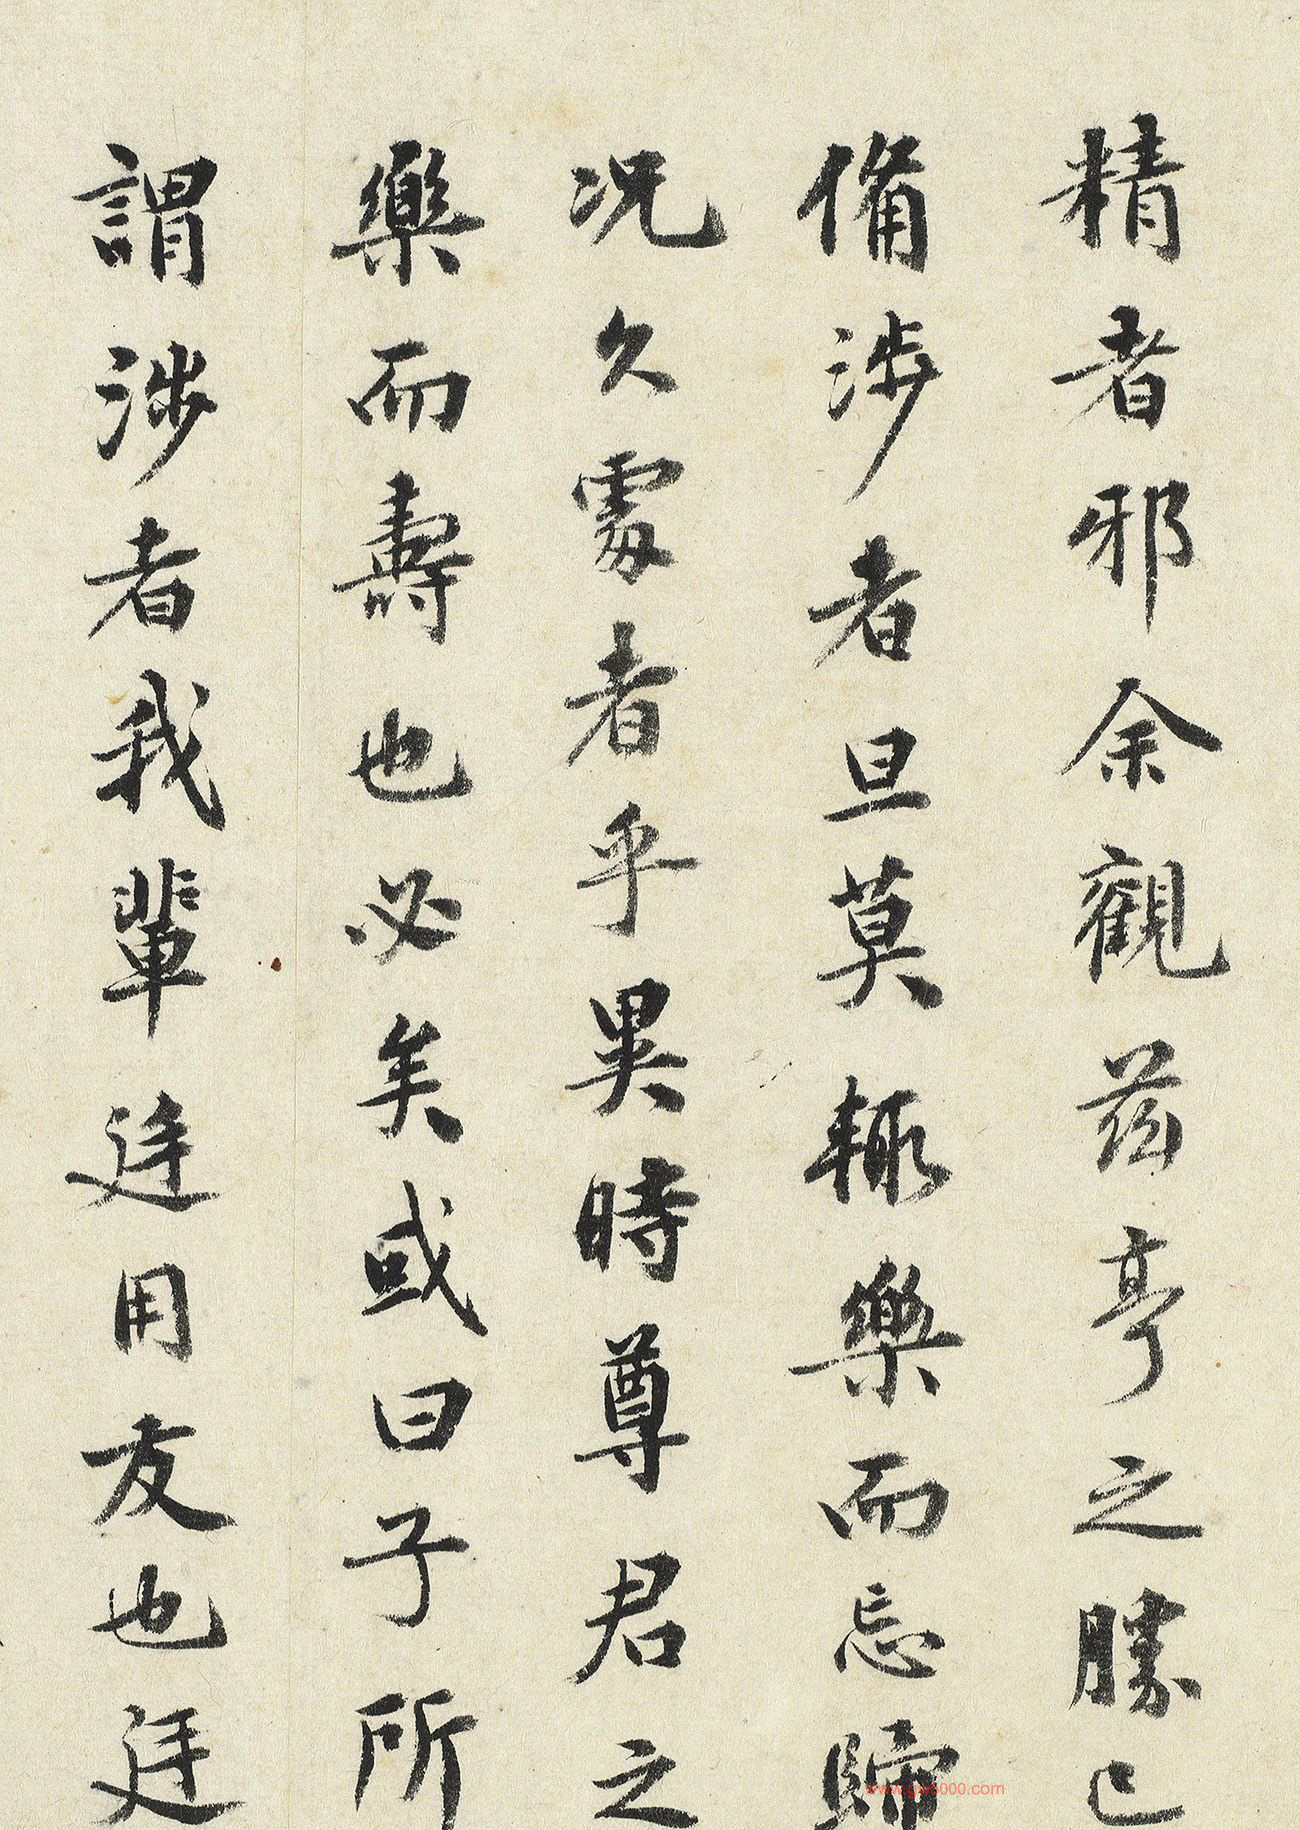 精者邪余觀茲亭之勝已
備涉者旦莫輒樂而忘歸
况久處者乎異時尊君之
樂而壽也必矣或曰子所
謂涉者我輩廷用友也廷
www.gw5000.com